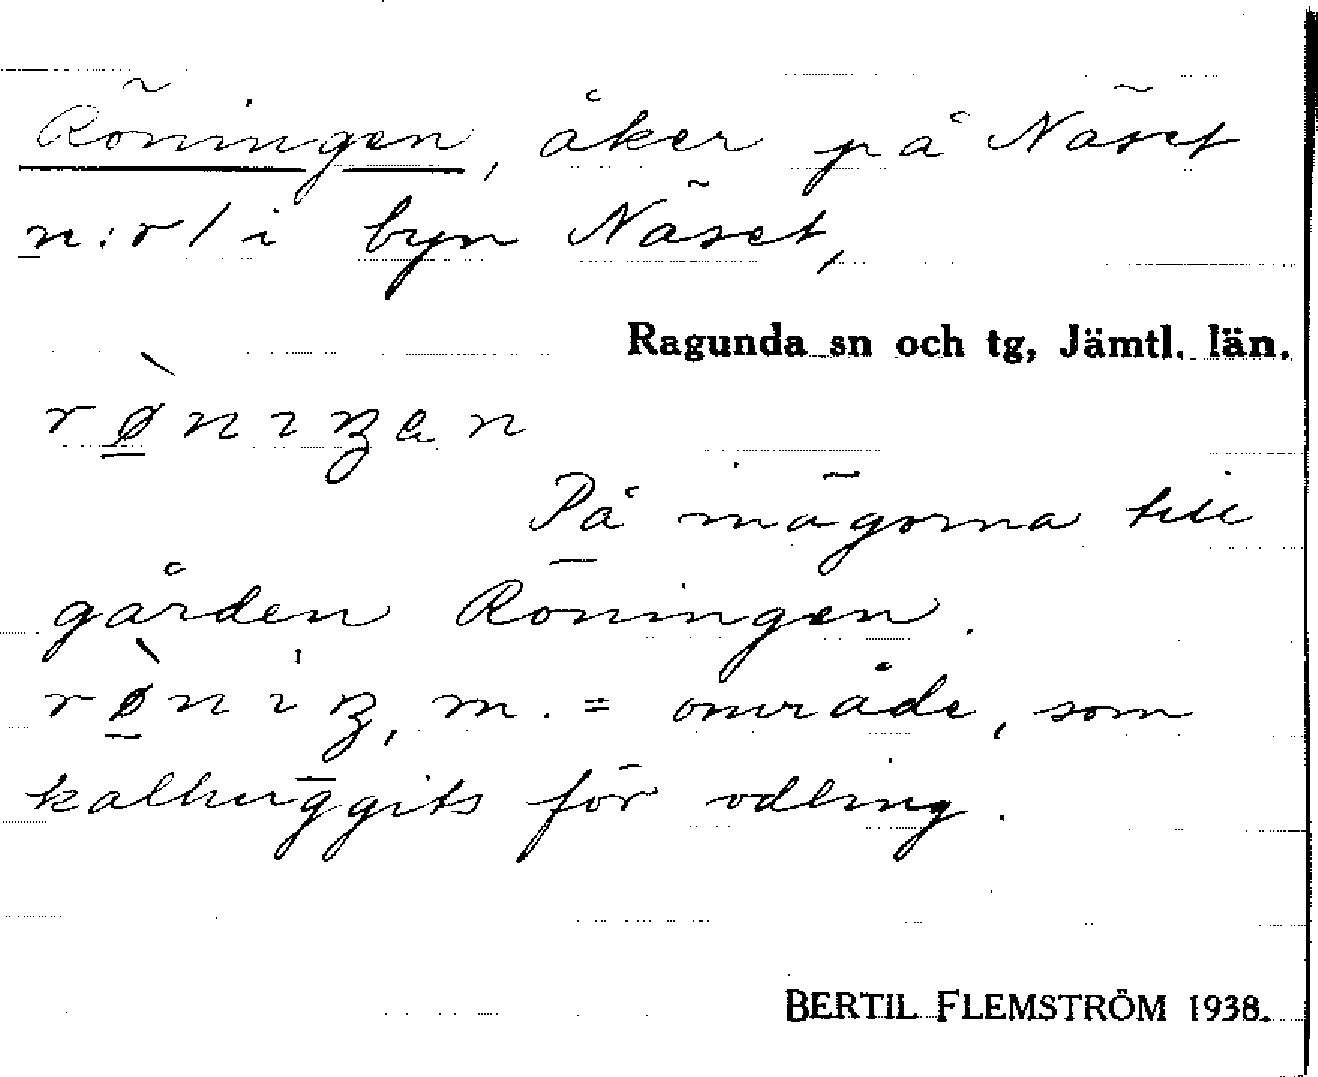 Röningen, åker på Näset
n:r 1 i byn Näset,
Ragunda sn och tg, Jämtl. län.
På mägorna till
gården Röningen.
m. = område, som
kalhuggits för odling.
BERTIL FLEMSTRÖM 1938.